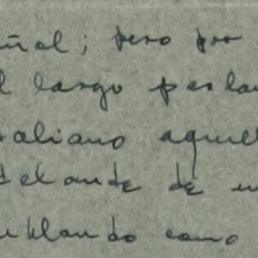 ñal; pero por
l largo parla
taliano aquel
delante de u
hablando como